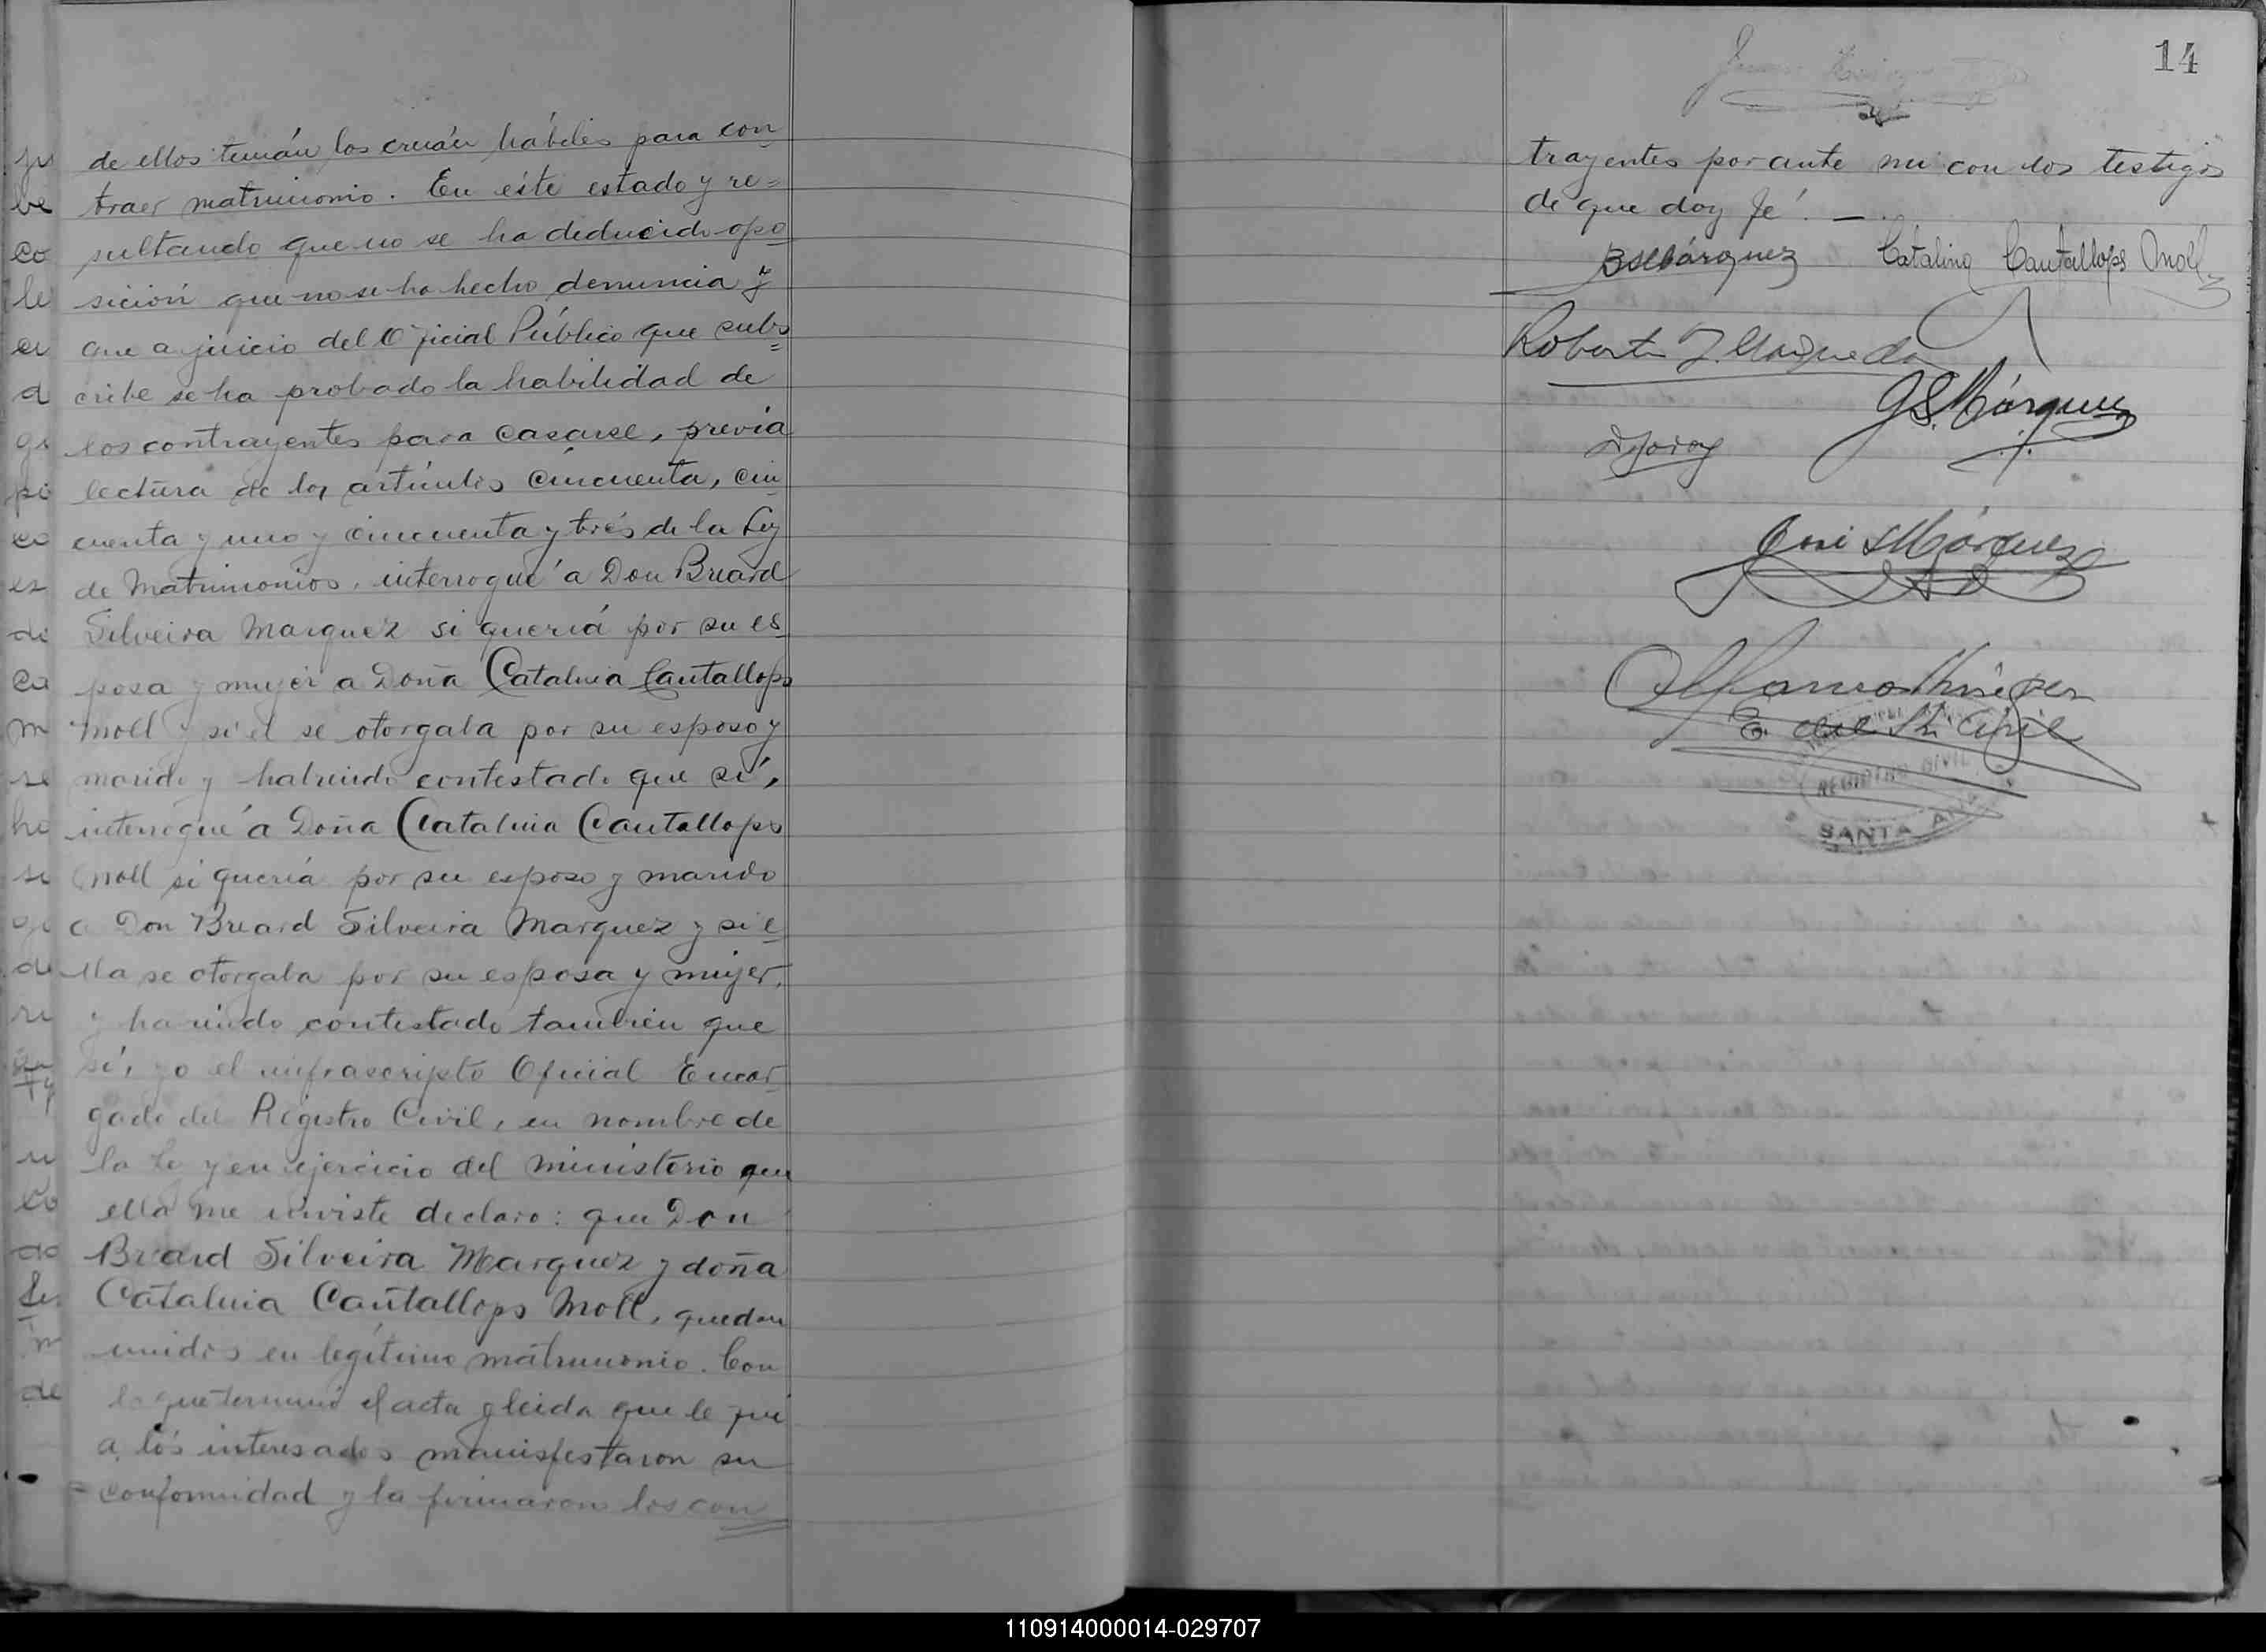 de ellos tenián los creián hábiles para con
traer matrimonio. En éste estado y re=
sultando que no se ha deducido opo
sición que no se ha hecho denuncia y
que a juicio del Oficial Público que subs
cribe se ha probado la habilidad de
los contrayentes para casarse, previa
lectura de los artículos cincuenta, cin
cuenta y uno y cincuenta y trés de la Ley
de Matrimonios, interrogué a Don Breard
Silveira Marquez si queriá por su es
posa y mujer a Doña Catalina Cantallops
Moll y si él se otorgaba por su esposo y
marido y habiendo contestado que sí,
interrogué a Doña Catalina Cantallops
Moll si quería por su esposo y marido
a Don Breard Silveira Marquez y si e
lla se otorgaba por su esposa y mujer,
y haviendo contestado también que
sí, yo el infrascripto Oficial Encar
gado del Registro Civil, en nombre de
la Ley y en ejercicio del ministerio que
ella me inviste declaro: que Don
Breard Silveira Marquez y doña
Catalina Cantallops Moll, quedan
unidos en legítimo matrimonio. Con
lo que terminó el acta y leida que le fué
a los interesados manisfestaron su
conformidad y la firmaron los con
14
trayentes por ante mi con los testigos
de que doy fé. —
BSMárquez Catalina Cantallops Moll
G.S. Márquez
José SMárquez
E. del R. Civil
REGISTRO CIVIL
SANTA ANA
110914000014-029707